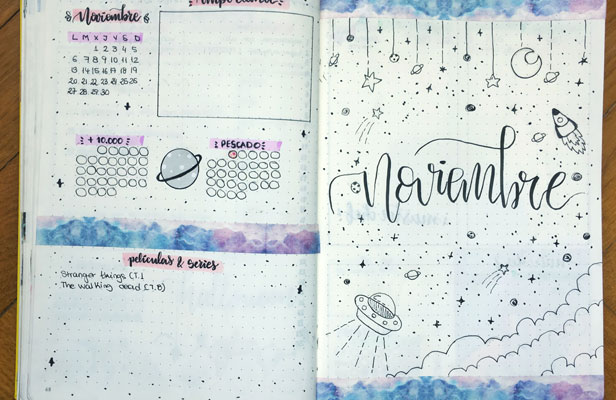 Noviembre
importante
L M X J V S D
1 2 3 4 5
6 7 8 9 10 11 12
13 14 15 16 17 18 19
20 21 22 23 24 25 26
27 28 29 30
+ 10.000
PESCADO
películas & series
Stranger things (T.1
The walking dead (T.8)
noviembre